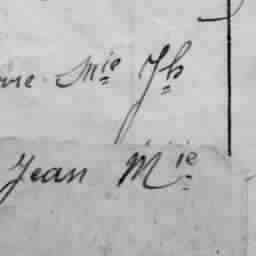 Mie Jh
Jean Mie